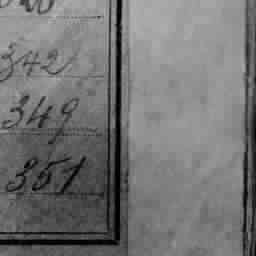 342
349
351